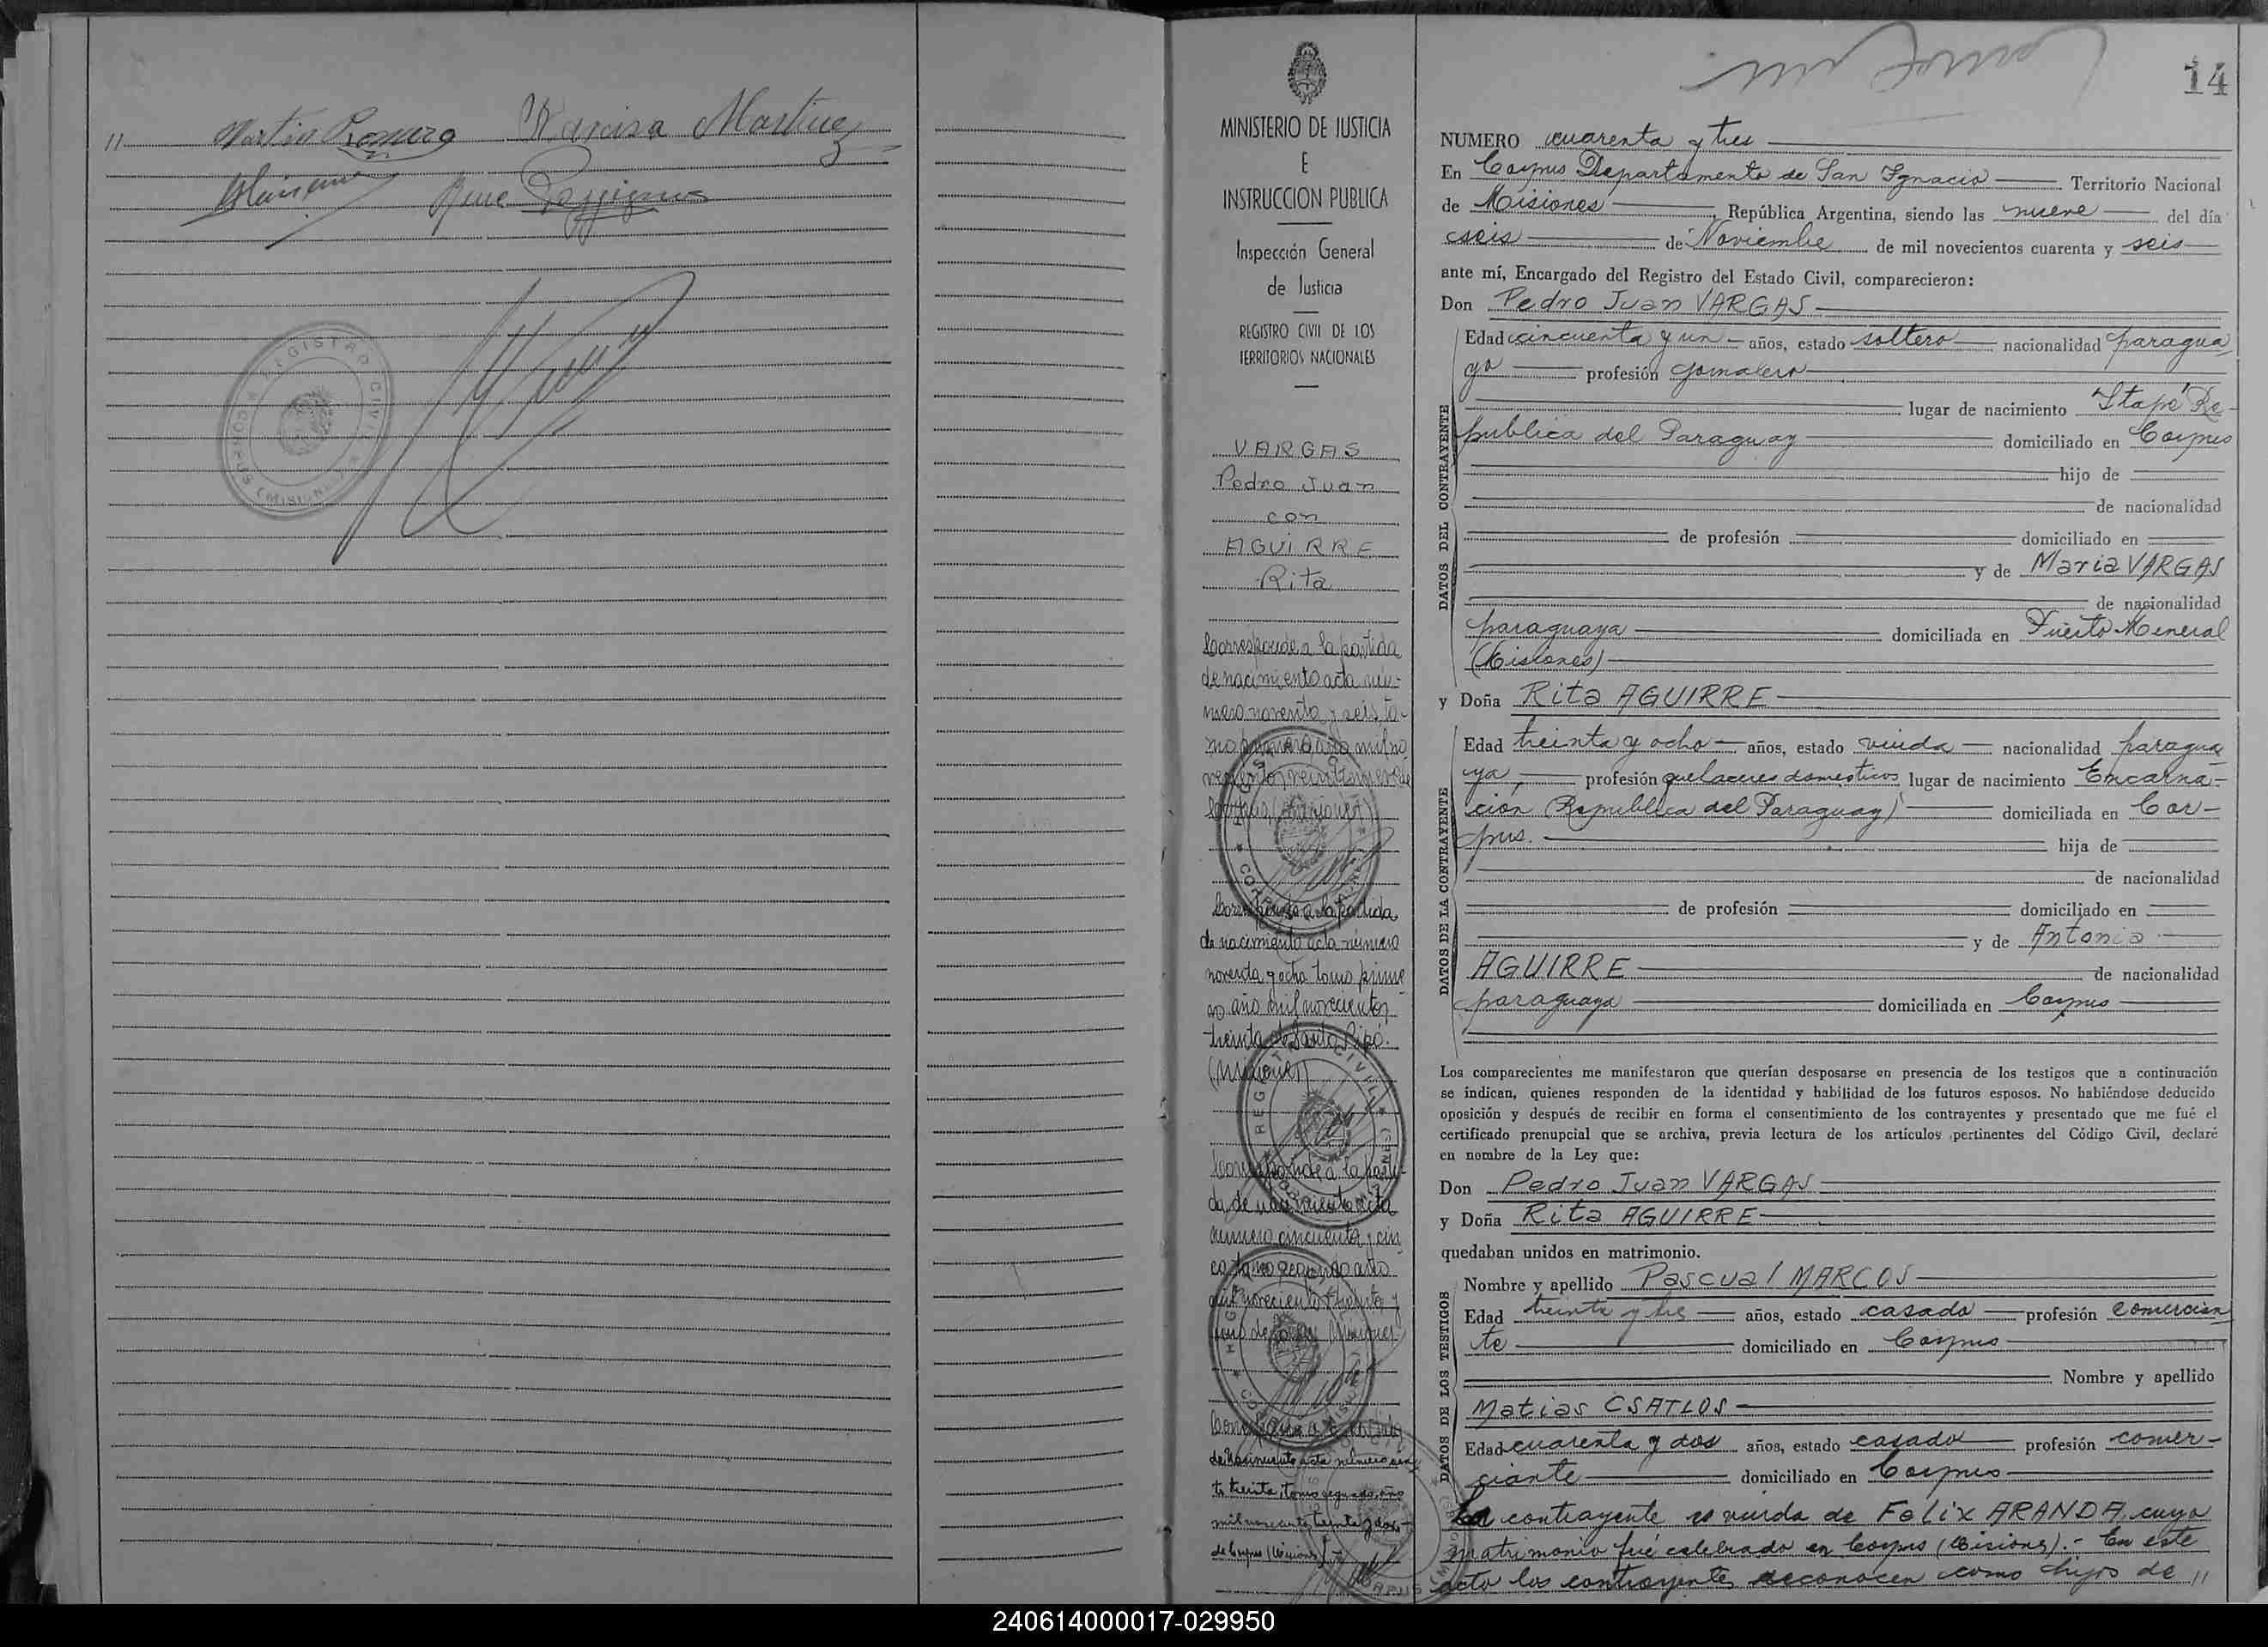 11 Martin Romero Narcisa Martinez
MINISTERIO DE JUSTICIA
E
INSTRUCCION PUBLICA
Inspección General
de Justicia
REGISTRO CIVIL DE LOS
TERRITORIOS NACIONALES
VARGAS
Pedro Juan
con
AGUIRRE
Rita
Corresponde a la partida
de nacimiento acta nú-
mero noventa y seis to-
Corresponde a la partida
de nacimiento acta número
noventa y ocho tomo prime
ro año mil novecientos
treinta de Santo Pipó.
(Misiones)
Corresponde a la parti-
da de nacimiento acta
número cincuenta y cin
co tomo segundo año
mil novecientos treinta y
de nacimiento acta número
to treinta, tomo segundo, año
mil novecientos treinta y dos-
de Corpus (Misiones)
14
NUMERO cuarenta y tres
En Corpus Departamento de San Ignacio Territorio Nacional
de Misiones, República Argentina, siendo las nueve del día
seis de Noviembre de mil novecientos cuarenta y seis
ante mí, Encargado del Registro del Estado Civil, comparecieron:
Don Pedro Juan VARGAS
DATOS DEL CONTRAYENTE
Edad cincuenta y un años, estado soltero nacionalidad paragua
yo profesión jornalero
lugar de nacimiento Itapé Re-
publica del Paraguay domiciliado en Corpus
hijo de
de nacionalidad
de profesión domiciliado en
y de Maria VARGAS
de nacionalidad
paraguaya domiciliada en Puerto Mineral
(Misiones)
y Doña Rita AGUIRRE
DATOS DE LA CONTRAYENTE
Edad treinta y ocho años, estado viuda nacionalidad paragua
ya, profesión quehaceres domesticos lugar de nacimiento Encarna-
ción (Republica del Paraguay) domiciliada en Cor-
pus. hija de
de nacionalidad
de profesión domiciliado en
y de Antonia
AGUIRRE de nacionalidad
paraguaya domiciliada en Corpus
Los comparecientes me manifestaron que querían desposarse en presencia de los testigos que a continuación
se indican, quienes responden de la identidad y habilidad de los futuros esposos. No habiéndose deducido
oposición y después de recibir en forma el consentimiento de los contrayentes y presentado que me fué el
certificado prenupcial que se archiva, previa lectura de los artículos pertinentes del Código Civil, declaré
en nombre de la Ley que:
Don Pedro Juan VARGAS
y Doña Rita AGUIRRE
quedaban unidos en matrimonio.
DATOS DE LOS TESTIGOS
Nombre y apellido Pascual MARCOS
Edad treinta y tre años, estado casado profesión comercian
te domiciliado en Corpus
Nombre y apellido
Matias CSATLOS
Edad cuarenta y dos años, estado casado profesión comer-
ciante domiciliado en Corpus
La contrayente es viuda de Felix ARANDA, cuyo
matrimonio fué celebrado en Corpus (Misiones).- En este
acto los contrayentes reconocen como hijos de 11
240614000017-029950